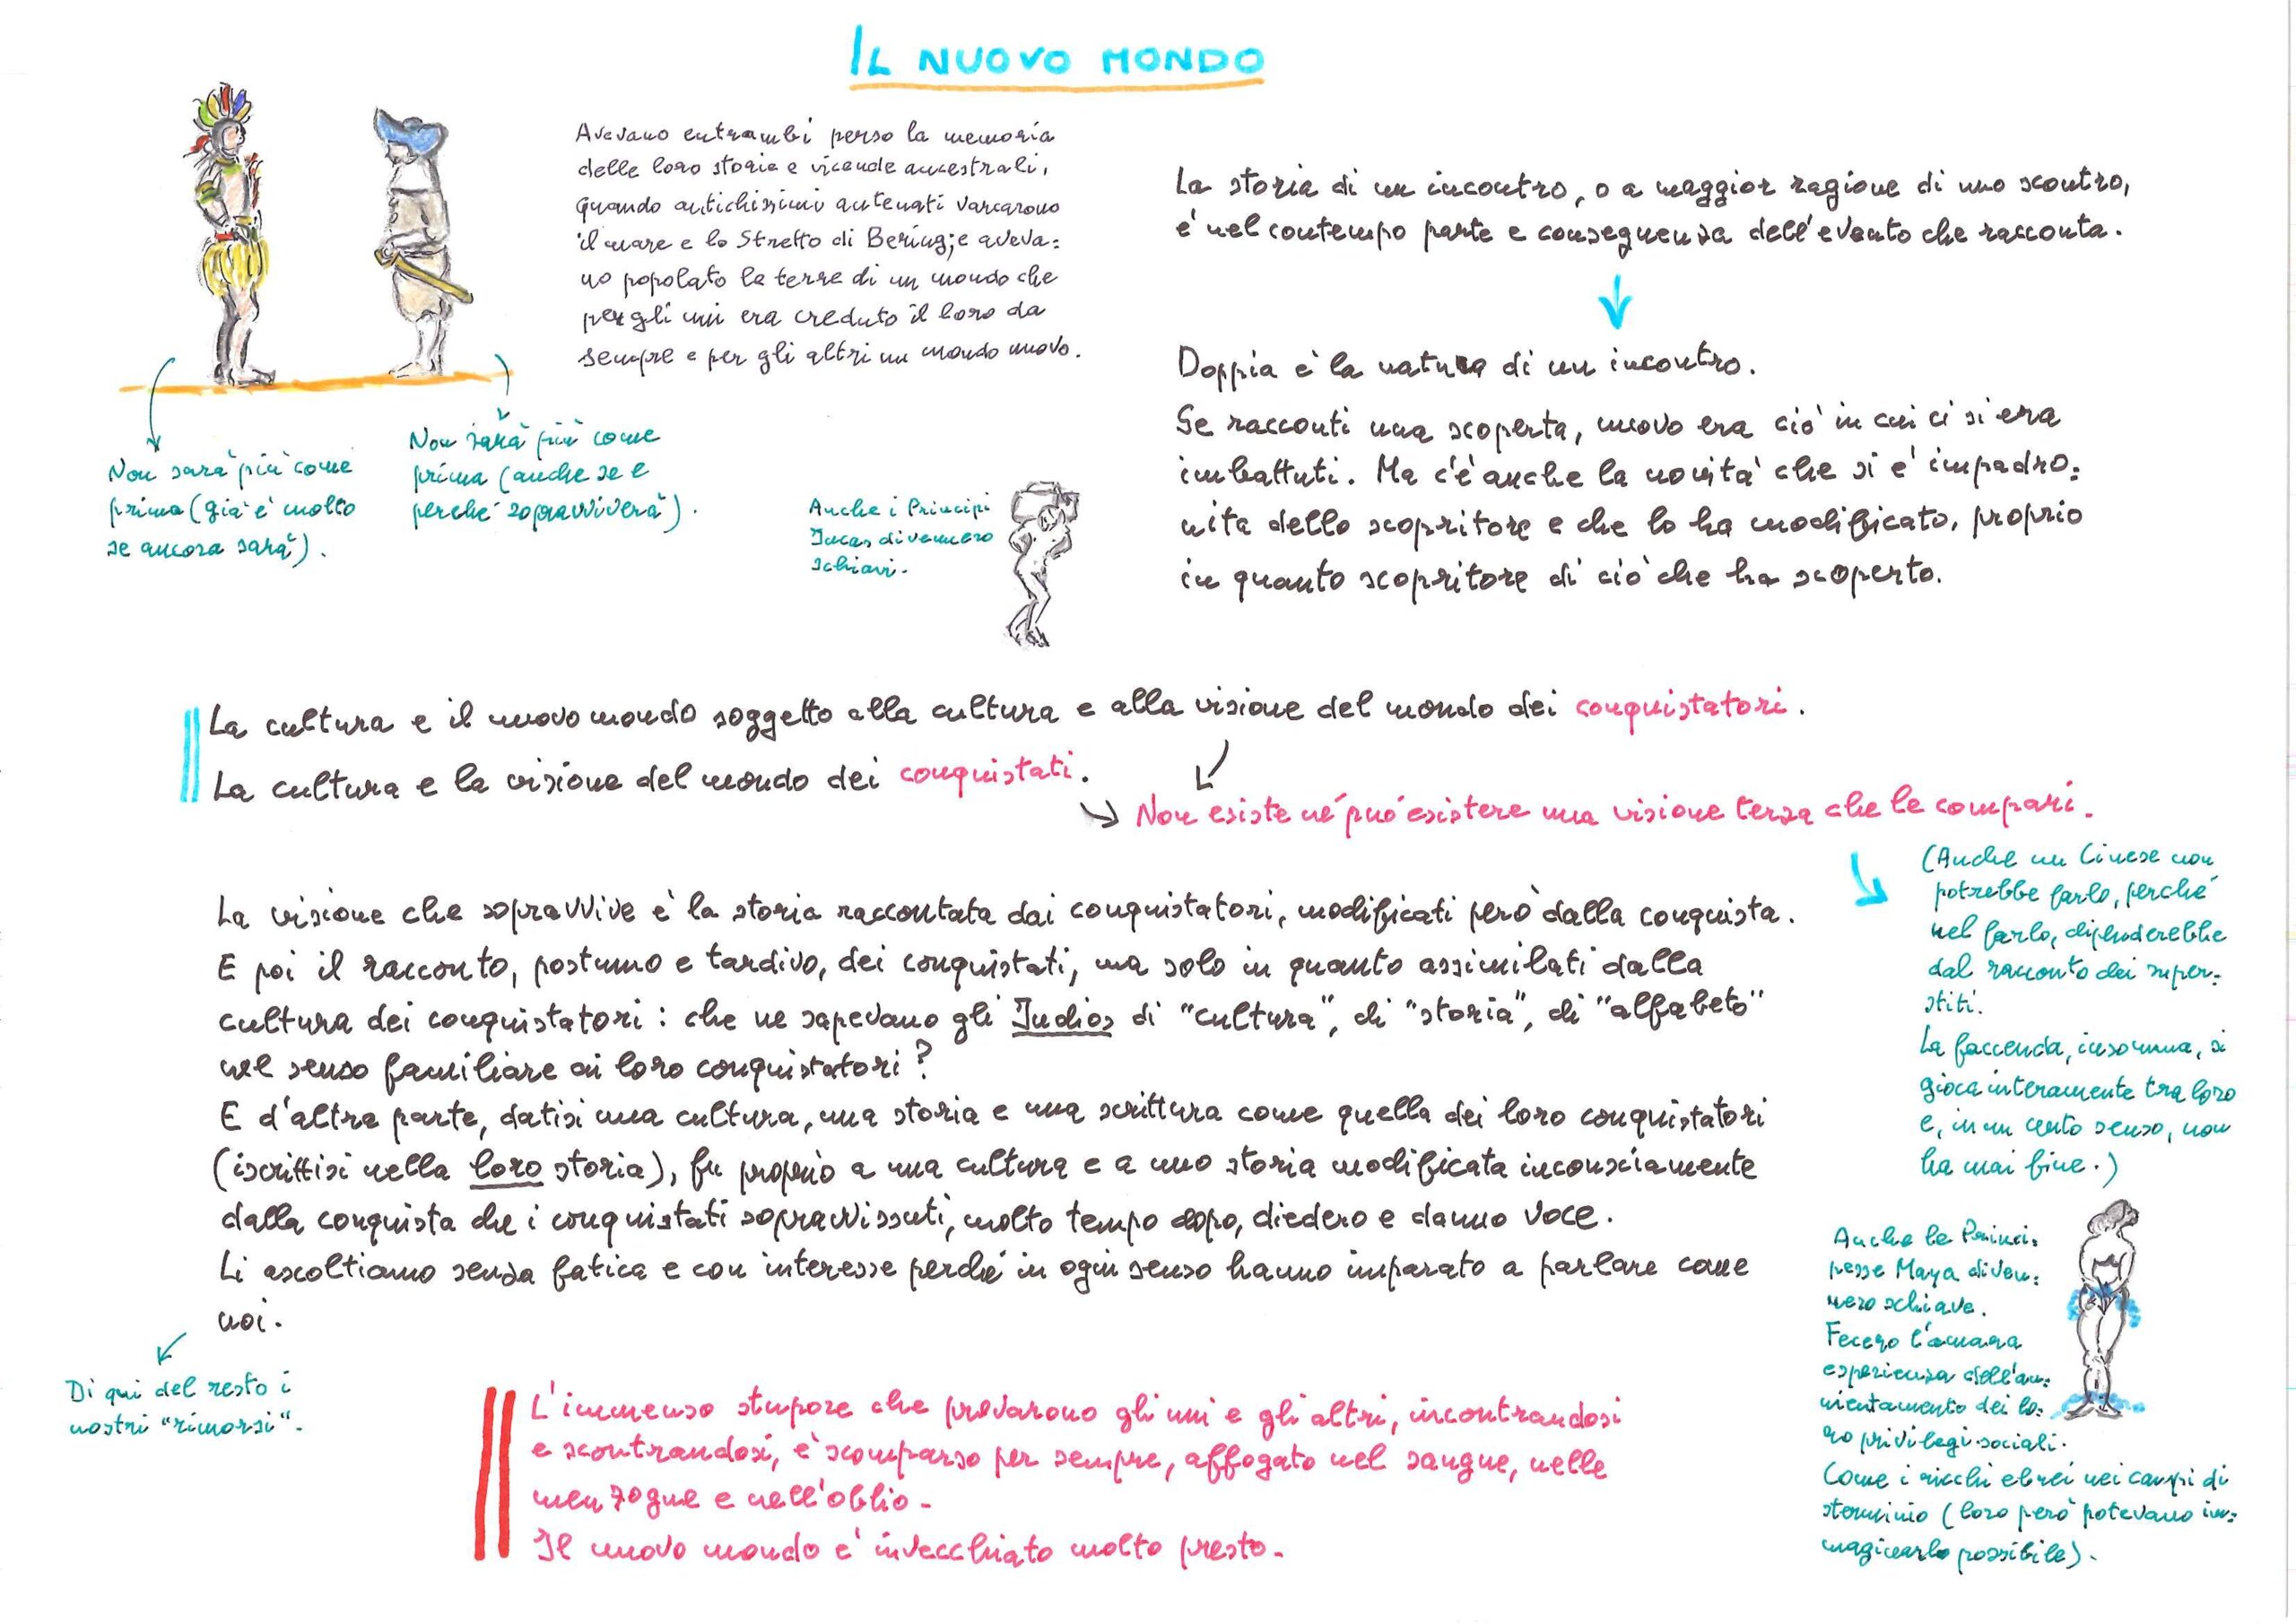 IL NUOVO MONDO
Avevano entrambi perso la memoria
delle loro storie e vicende ancestrali,
quando antichissimi antenati varcarono
il mare e lo Stretto di Bering; e aveva=
no popolato le terre di un mondo che
per gli uni era creduto il loro da
sempre e per gli altri un mondo nuovo.
Non sarà più come
prima (già è molto
se ancora sarà).
Non sarà più come
prima (anche se e
perché sopravviverà).
Anche i Principi
Incas divennero
schiavi.
La storia di un incontro, o a maggior ragione di uno scontro,
è nel contempo parte e conseguenza dell'evento che racconta.
Doppia è la natura di un incontro.
Se racconti una scoperta, nuovo era ciò in cui ci si era
imbattuti. Ma c'è anche la novità che si è impadro=
nita dello scopritore e che lo ha modificato, proprio
in quanto scopritore di ciò che ha scoperto.
La cultura e il nuovo mondo soggetto alla cultura e alla visione del mondo dei conquistatori.
La cultura e la visione del mondo dei conquistati.
Non esiste né può esistere una visione terza che le compari.
(Anche un Cinese non
potrebbe farlo, perché
nel farlo, dipenderebbe
dal racconto dei super=
stiti.
La faccenda, insomma, si
gioca interamente tra loro
e, in un certo senso, non
ha mai fine.)
La visione che sopravvive è la storia raccontata dai conquistatori, modificati però dalla conquista.
E poi il racconto, postumo e tardivo, dei conquistati, ma solo in quanto assimilati dalla
cultura dei conquistatori: che ne sapevano gli Indios di "cultura", di "storia", di "alfabeto"
nel senso familiare ai loro conquistatori?
E d'altra parte, datisi una cultura, una storia e una scrittura come quella dei loro conquistatori
(iscrittisi nella loro storia), fu proprio a una cultura e a uno storia modificata inconsciamente
dalla conquista che i conquistati sopravvissuti, molto tempo dopo, diedero e danno voce.
Li ascoltiamo senza fatica e con interesse perché in ogni senso hanno imparato a parlare come
noi.
Di qui del resto i
nostri "rimorsi".
L'immenso stupore che provarono gli uni e gli altri, incontrandosi
e scontrandosi, è scomparso per sempre, affogato nel sangue, nelle
menzogne e nell'oblio.
Il nuovo mondo è invecchiato molto presto.
Anche le Princi=
pesse Maya diven=
nero schiave.
Fecero l'amara
esperienza dell'an=
nientamento dei lo=
ro privilegi sociali.
Come i ricchi ebrei nei campi di
sterminio (loro però potevano im=
maginarlo possibile).